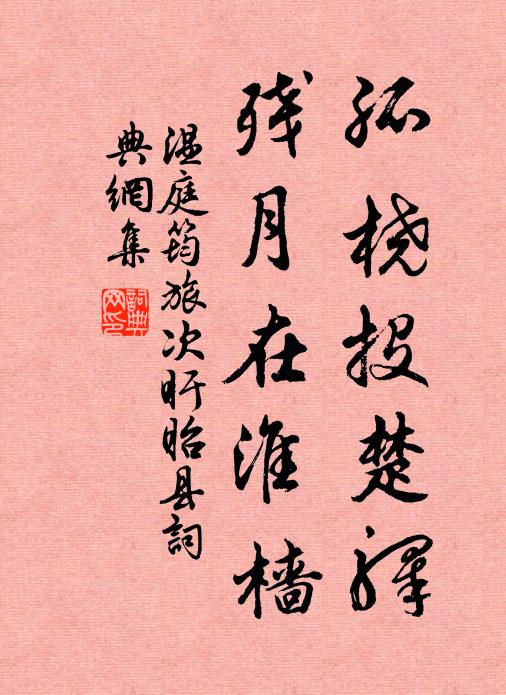 孤桡投楚驿
残月在淮樯
温庭筠旅次盱眙县词
典網集
詞典網印